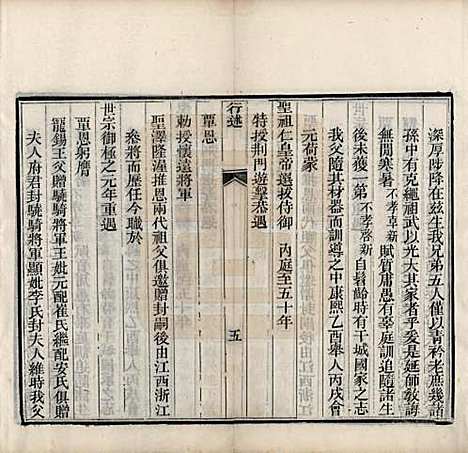 深厚陟降在兹生我兄弟五人僅以青衿老庶幾諸
孫中有克繩祖武以光大其家者乎爰是延師敦誨
無間寒暑不孝阜新賦質庸愚有辜庭訓追隨諸生
後未獲一第不孝啓新自髫齡時有干城國家之志
我父隨其材器而訓導之中康熙乙酉舉人丙戌會
元荷蒙
聖祖仁皇帝選拔侍衛　内庭至五十年
特授荆門遊擊恭遇
行述
五
覃恩
勅授懷遠將軍
聖澤隆渥推恩兩代祖父俱邀贈封嗣後由江西浙江
叅將而歷任今職於
世宗御極之元年重遇
覃恩躬膺
寵錫王父贈驍騎將軍王妣元配崔氏繼配安氏俱贈
夫人府君封驍騎將軍顯妣李氏封夫人維時我父